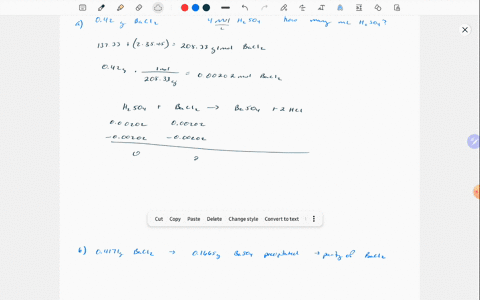 a) 0.42 g BaCl2 4 mol/L H2SO4 how many mL H2SO4?
137.33 + (2·35.45) = 208.33 g/mol BaCl2
0.42g · 1mol/208.33g = 0.00202 mol BaCl2
H2SO4 + BaCl2 → BaSO4 + 2HCl
0.00202 0.00202
-0.00202 -0.00202
0 0
Cut Copy Paste Delete Change style Convert to text
b) BaCl2 → 0.1665g BaSO4 precipitated → purity of BaCl2